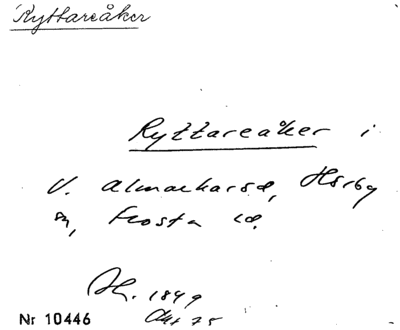 Ryttareåker
Ryttareåker i
V. Almarharsa, Hörby
sn, Frosta hd.
Ah. 1849
Akt 75
Nr 10446